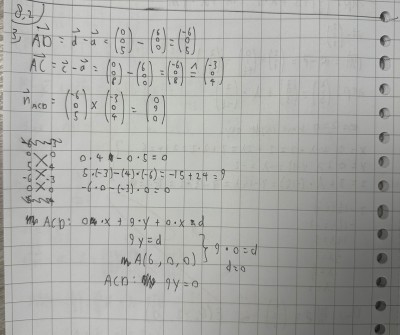 8,2)
3, AD⃗ = d⃗ - a⃗ = (0 0 5) - (6 0 0) = (-6 0 5)
AC⃗ = c⃗ - a⃗ = (0 0 8) - (6 0 0) = (-6 0 8) ≙ (-3 0 4)
n⃗ACD = (-6 0 5) × (-3 0 4) = (0 9 0)
0 · 4 - 0 · 5 = 0
5 · (-3) - (4) · (-6) = -15 + 24 = 9
-6 · 0 - (-3) · 0 = 0
ACD: 0 · x + 9 · y + 0 · x = d
9y = d
A(6, 0, 0) } 9 · 0 = d
d = 0
ACD: 9y = 0